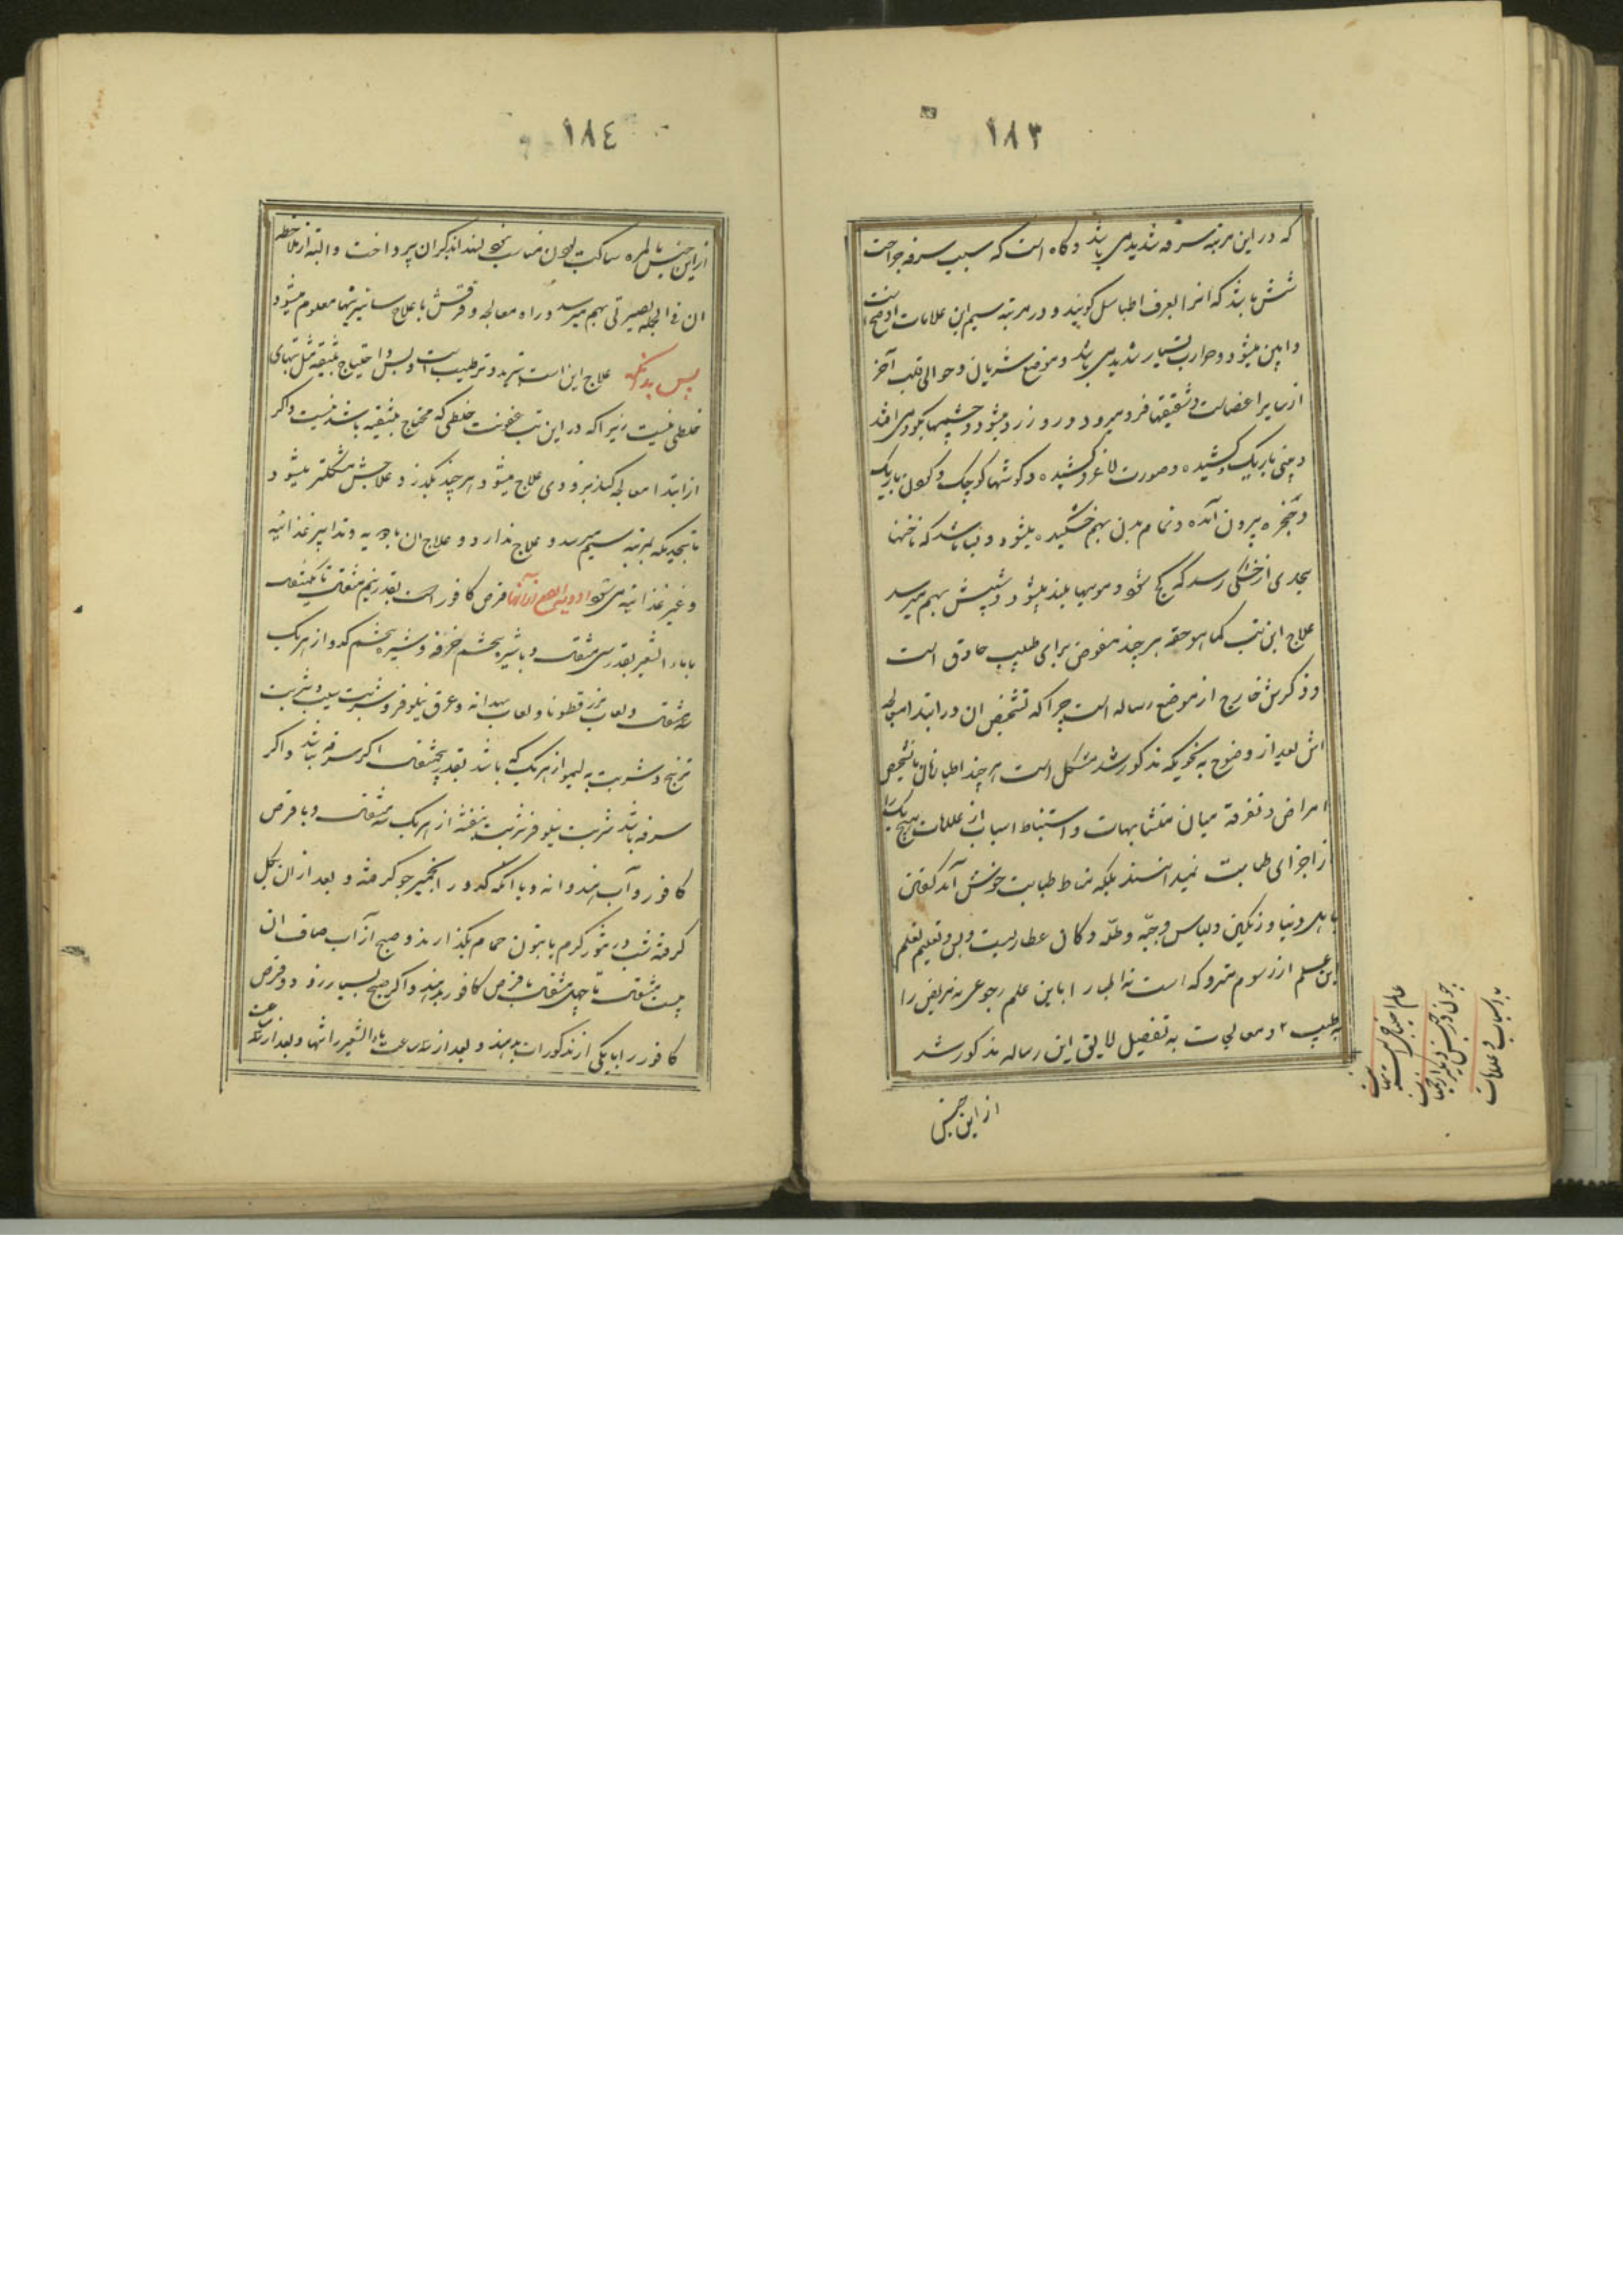 ١٨٣
که در این مرتبه سرفه شدید می باشد و کاه است که سبب سرفه جراحت
شش باشد که انرا بعرف اطبا سل کویند و در مرتبه سیم این علامات اوضح است
و ابین میشود و حرارت بسیار شدید می باشد و موضع شریان و حوالی قلب آخر
از سایر اعضاست و شقیقها فرو میرود و رو زرد میشود و چشمها بکودی افتد
و بینی باریک و کشیده و صورت لاغر و کشیده و کوشها کوچک و کردن باریک
و حنجره بیرون آمده و تمام بدن بهم خشکیده میشود و ناخنها
بحدی از خشکی رسد که کج شود و مویها بلند میشود و شپش بهم میرسد
علاج این تب کما هو حقه هر چند مفوض برای طبیب حاذق است
و ذکرش خارج از موضع رساله است چرا که تشخیص ان در ابتدا و معالجه
اش بعد از وضوح به نحویکه مذکور شد مشکل است هر چند اطبا زمان ما تشخیص
امراض و تفرقه میان متشابهات و استنباط اسباب از علامات هیچ یک را
از اجزای طبابت نمیدانند بلکه مناط طبابت خوش آمد کفتن
باهل دنیا و رنکین و لباس و جبّه و دکان عطاریست و بس و تعلیم و تعلم
این علم از رسوم متروکه است نه اطبا را باین علم رجوعی نه مریض را
به طبیب و معالجات به تفصیل لایق این رساله مذکور شد
از این جنس
١٨٤
از این جنس بالمره ساکت بودن مناسب نبود لهذا بذکر ان پرداخت و البته از ملاحظه
ان فی الجمله بصیرتی بهم میرسد و راه معالجه و فرقش با علاج سایر تبها معلوم میشود
پس بدانکه علاج این است تبرید و ترطیب است و بس و احتیاج بتنقیه مثل تبهای
خلطی نیست زیرا که در این تب عفونت خلطی که محتاج بتنقیه باشد نیست و اکر
از ابتدا معالجه کنند بزودی علاج میشود و هر چند بکذرد علاجش مشکلتر میشود
تا بحدیکه بمرتبه سیم میرسد و علاج ندارد و علاج ان بادویه و تدابیر غذائیه
و غیر غذائیه می شود ادویه قرص کافور است بقدر نیم مثقال تا یکمثقال
با ماء الشعیر بقدر سی مثقال و با شیره تخم خرفه و شیره تخم کدو از هر یک
سه مثقال و لعاب بزرقطونا و لعاب بهدانه و عرق نیلوفر و شربت سیب و شربت
ترنج و شربت به لیمو از هر یک که باشد بقدر پنجمثقال اکر سرفه نباشد و اکر
سرفه باشد شربت نیلوفر شربت بنفشه از هر یک سه مثقال و با قرص
کافور و آب هندوانه و با آنکه کدو را بخمیر جو کرفته و بعد از ان بکل
کرفته شب در تنور کرم یا بتون حمام بکذارند و صبح از آب صاف ان
بیست مثقال تا چهل مثقال با قرص کافور بدهند و اکر صبح بسیار زود قرص
کافور را با یکی از مذکورات بدهند و بعد از سه ساعت ماء الشعیر را تنها و بعد از سه ساعت